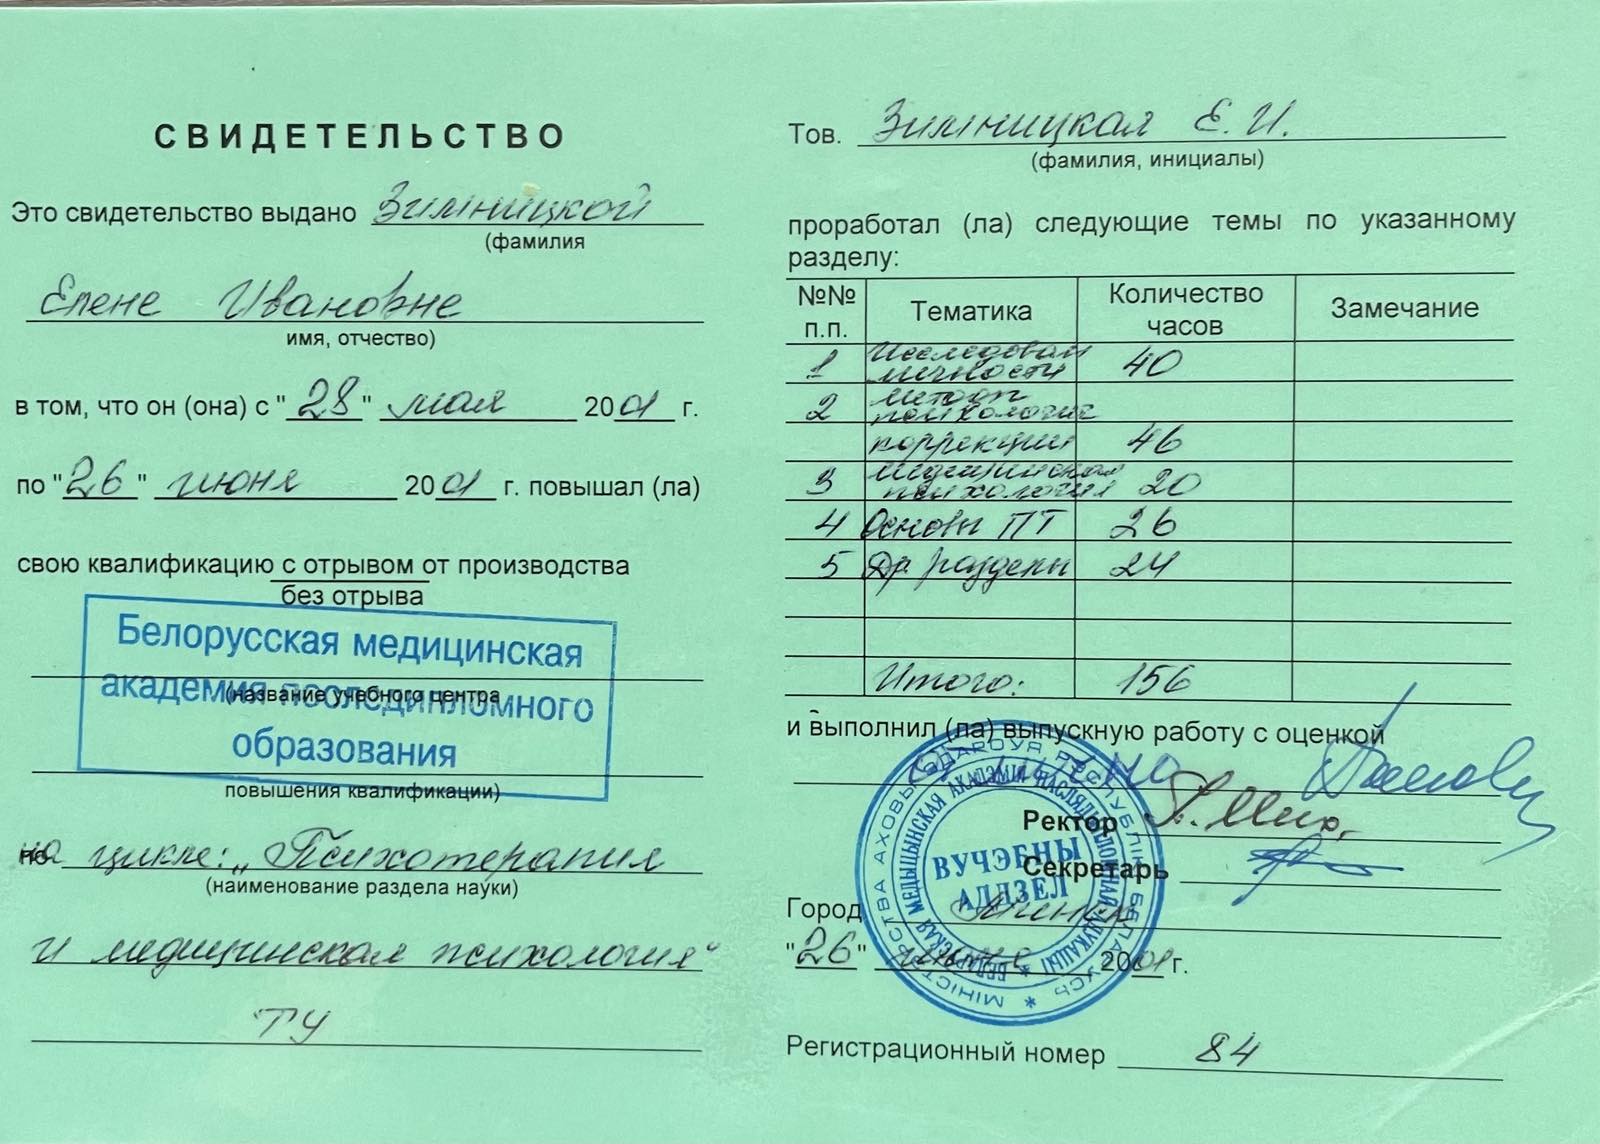 СВИДЕТЕЛЬСТВО
Это свидетельство выдано Зимницкой
(фамилия
Елене Ивановне
имя, отчество)
в том, что он (она) с "28" мая 2001 г.
по "26" июня 2001 г. повышал (ла)
свою квалификацию с отрывом от производства
без отрыва
Белорусская медицинская
академия последипломного
образования
(название учебного центра
повышения квалификации)
на цикле: „Психотерапия
(наименование раздела науки)
и медицинская психология"
ТУ
Тов. Зимницкая Е. И.
(фамилия, инициалы)
проработал (ла) следующие темы по указанному
разделу:
№№ п.п. Тематика Количество часов Замечание
1 Исследован личности 40
2 методы психологич
коррекции 46
3 медицинская психология 20
4 Основы ПТ 26
5 Др. разделы 24
Итого: 156
и выполнил (ла) выпускную работу с оценкой
отлично
Ректор
Секретарь
Город Минск
"26" июня 2001 г.
МІНІСТЭРСТВА АХОВЫ ЗДАРОУЯ РЕСПУБЛІКІ БЕЛАРУСЬ
БЕЛАРУСКАЯ МЕДЫЦЫНСКАЯ АКАДЭМІЯ ПАСЛЯДЫПЛОМНАЙ АДУКАЦЫІ
ВУЧЭБНЫ
АДДЗЕЛ
Регистрационный номер 84